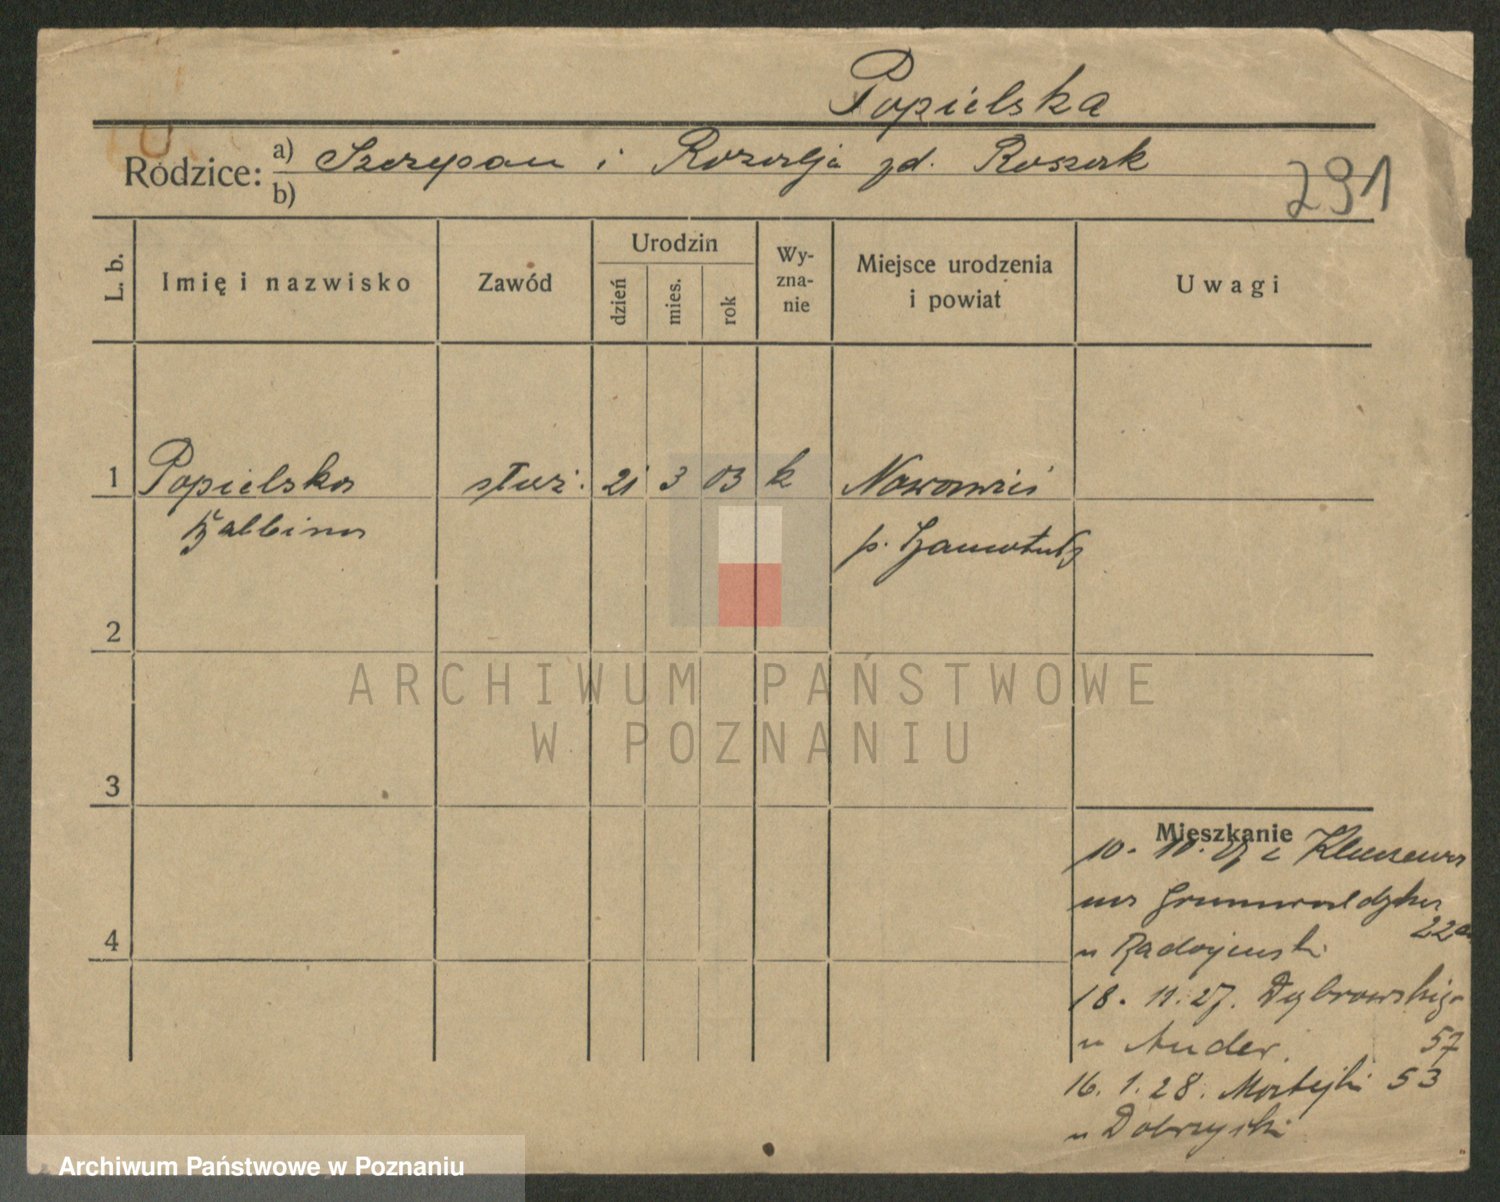 Popielska
Rodzice: a) Szczepan i Rozalja zd. Roszak
b)
291
L. b.
Imię i nazwisko
Zawód
Urodzin
dzień
mies.
rok
Wy-
zna-
nie
Miejsce urodzenia
i powiat
Uwagi
1 Popielska służ. 21 3 03 k Nowawieś
Balbina p. Szamotuły
2
3
4
ARCHIWUM PAŃSTWOWE
W POZNANIU
Mieszkanie
10. 10. 27 z
na Grunwaldzka
22a
u Radojewski
18. 11. 27. Dąbrowskieg.
u Auder. 57
16. 1. 28. Matejki 53
u Dobrzyski
Archiwum Państwowe w Poznaniu